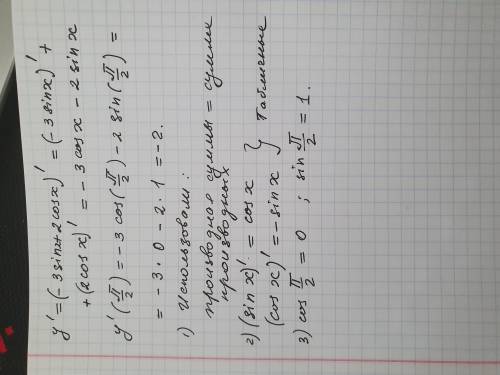 y' = (-3 sinx + 2cosx)' = (-3 sinx)' +
+ (2cosx)' = -3 cosx - 2 sinx
y'(π/2) = -3 cos(π/2) - 2 sin(π/2) =
= -3 · 0 - 2 · 1 = -2.
1) Использовали:
производная суммы = сумме
производных
2) (sin x)' = cosx
(cos x)' = - sinx } табличные
3) cos π/2 = 0 ; sin π/2 = 1.